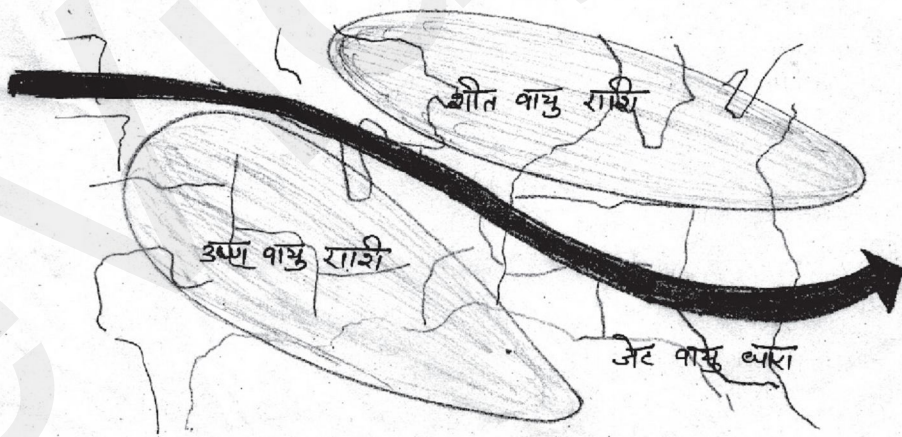 शीत वायु राशि
उष्ण वायु राशि
जेट वायु धारा